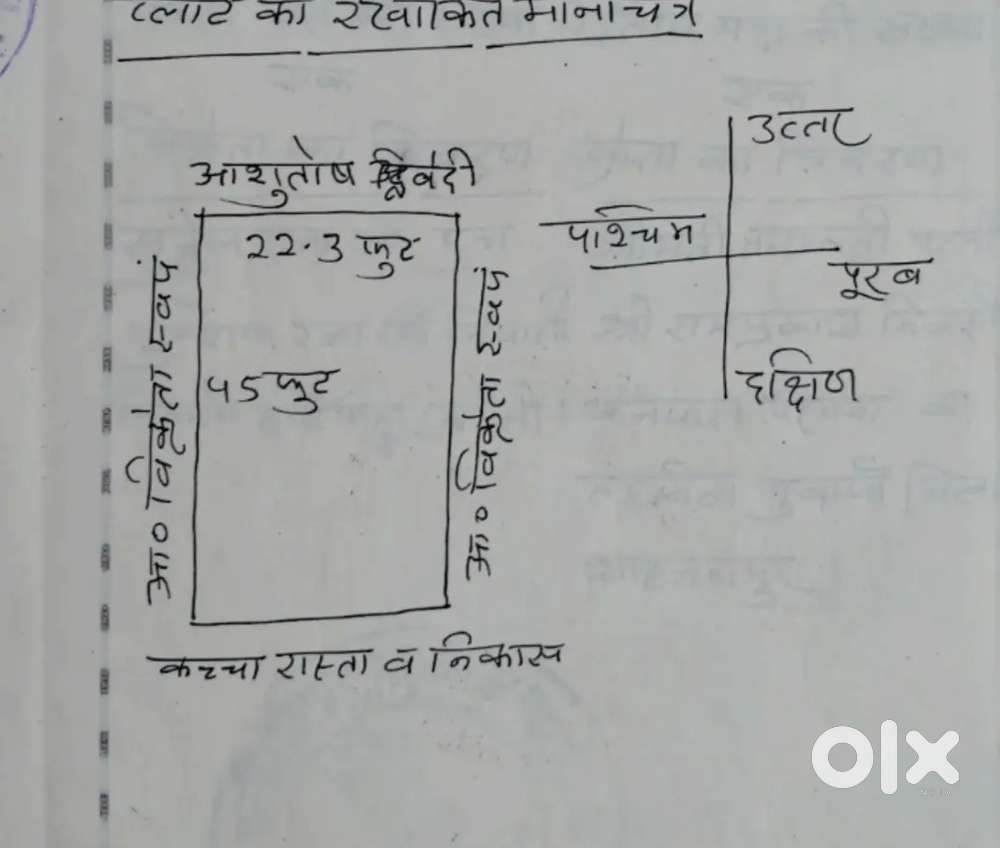 प्लाट का रेखांकित मानचित्र
आशुतोष द्विवेदी
22.3 फुट
45 फुट
आ० विक्रेता स्वयं
आ० विक्रेता स्वयं
कच्चा रास्ता व निकास
उत्तर
पश्चिम
पूरब
दक्षिण
olx